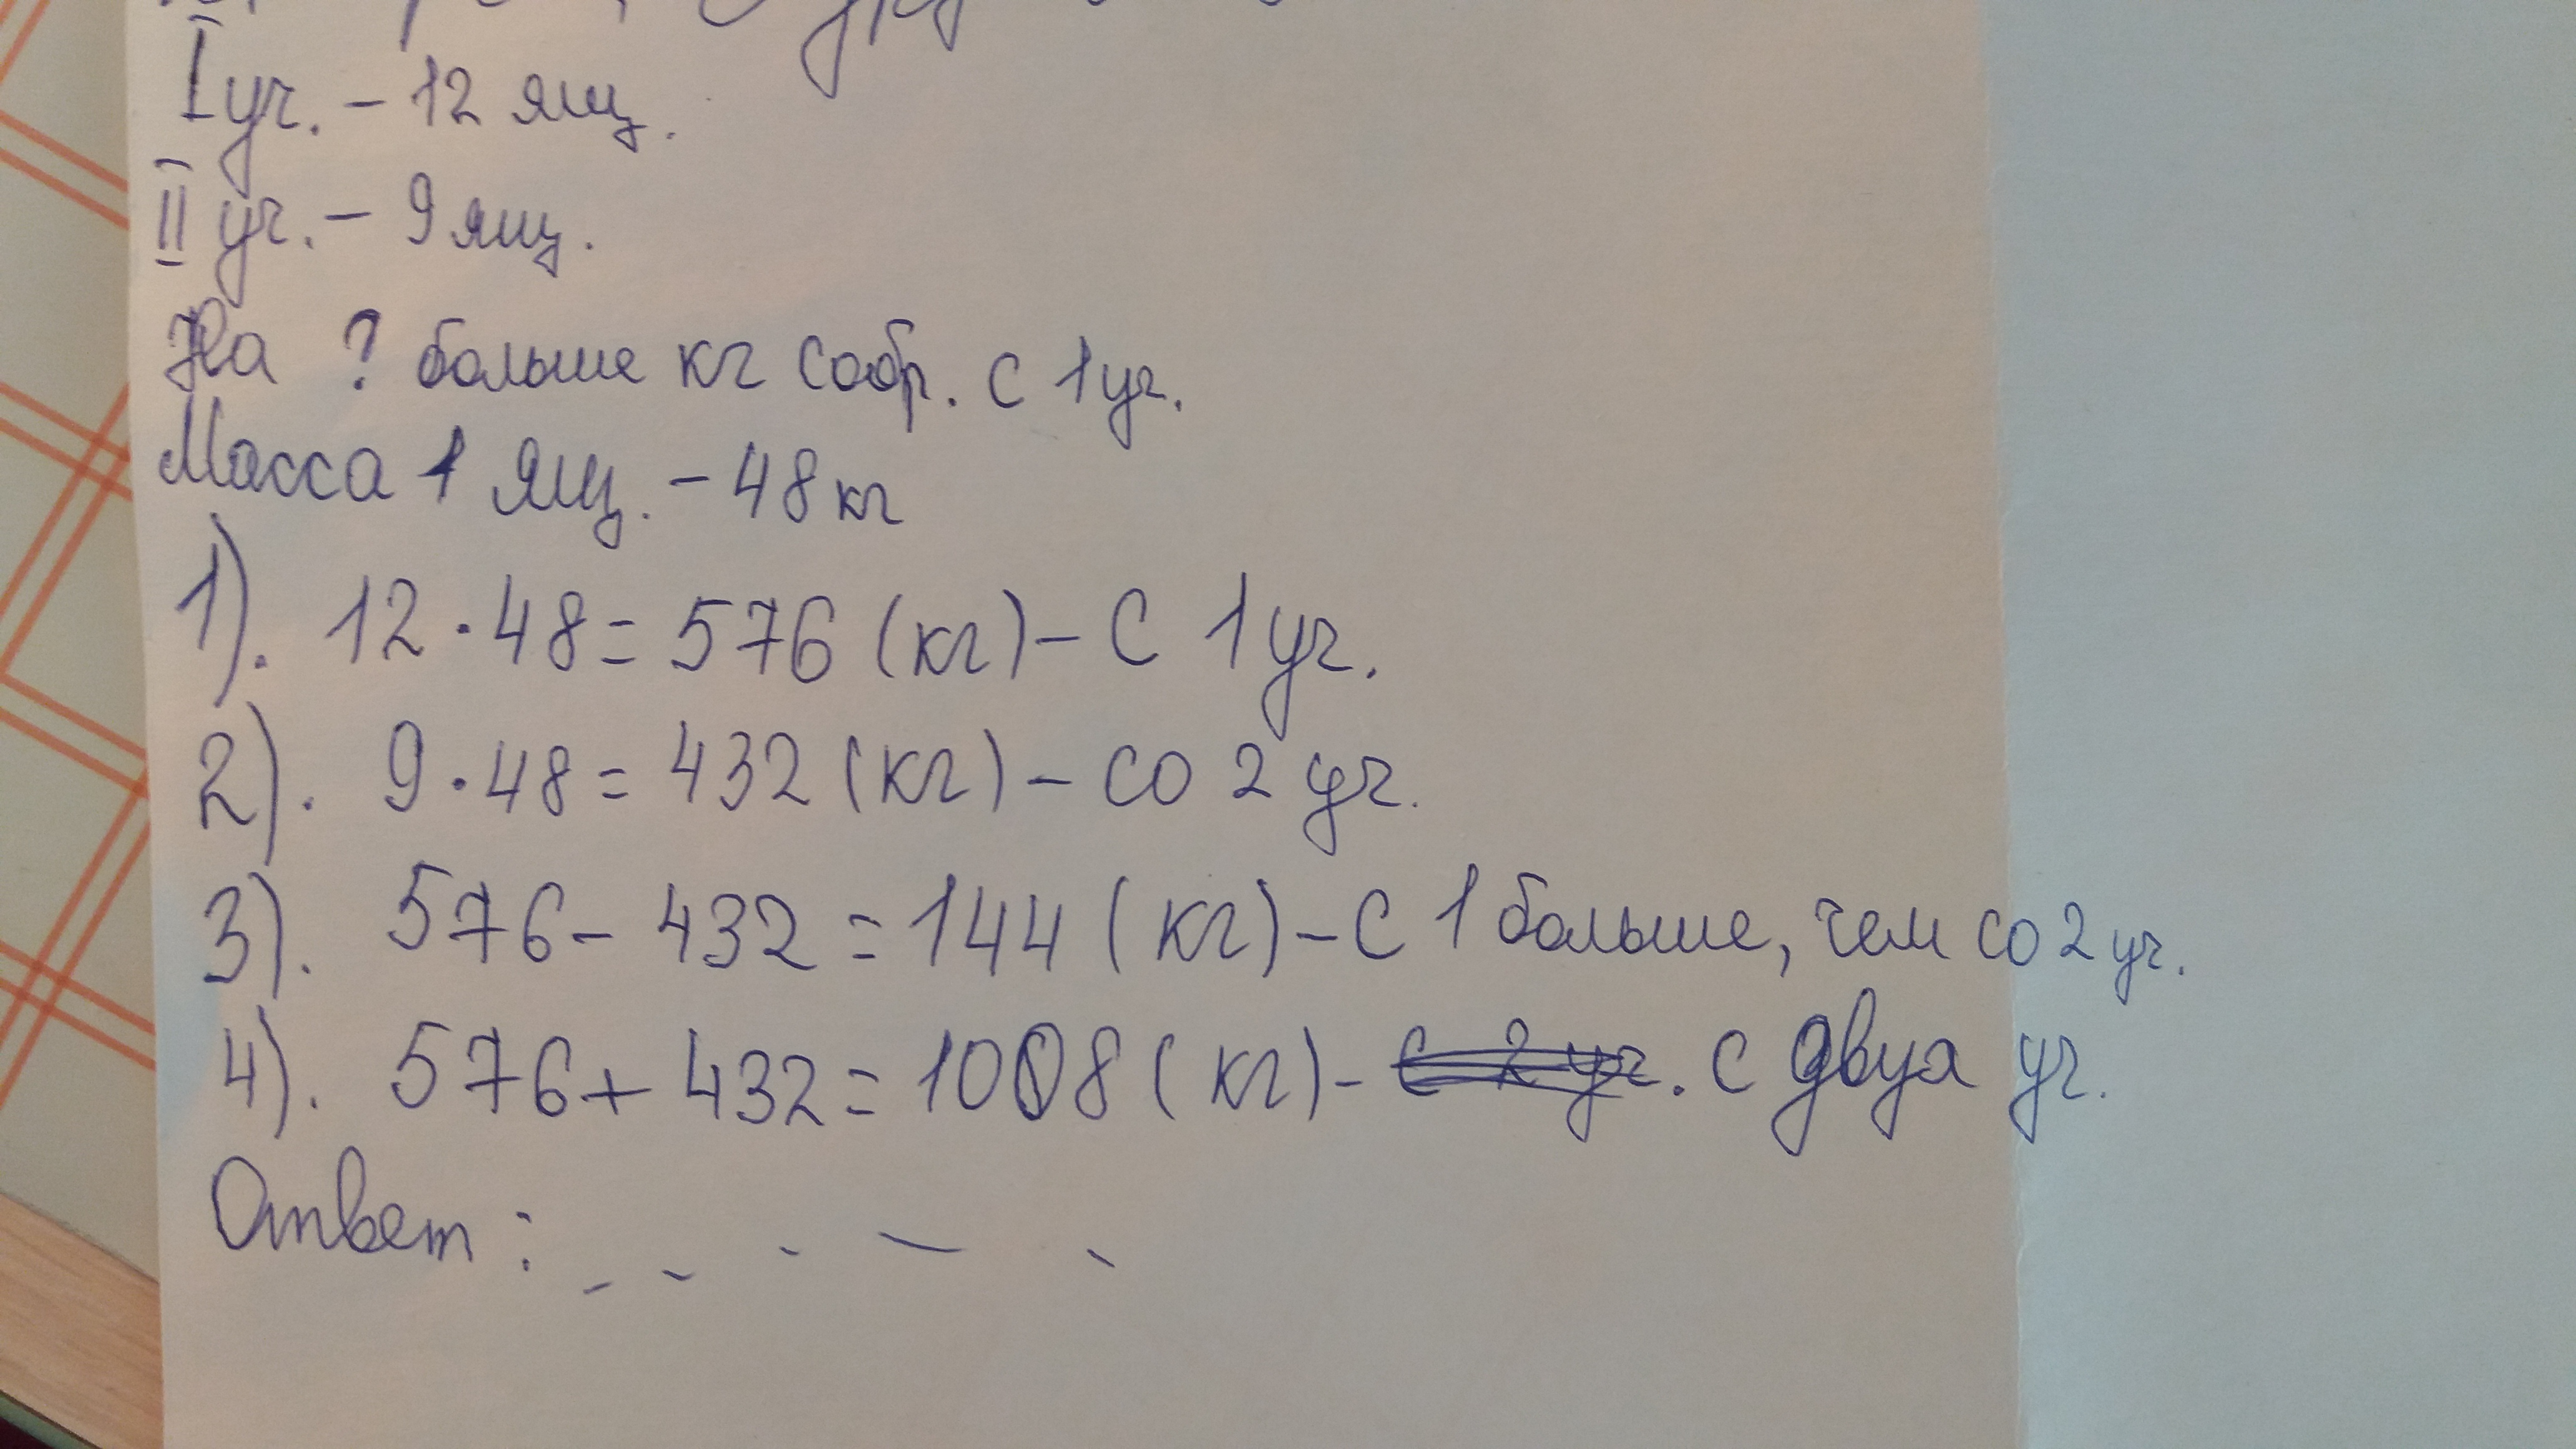 I уч. - 12 ящ.
II уч. - 9 ящ.
На ? больше кг собр. с 1 уч.
Масса 1 ящ. - 48 кг
1). 12 · 48 = 576 (кг) - с 1 уч.
2). 9 · 48 = 432 (кг) - со 2 уч.
3). 576 - 432 = 144 (кг) - с 1 больше, чем со 2 уч.
4). 576 + 432 = 1008 (кг) - с 2 уч. с двух уч.
Ответ :